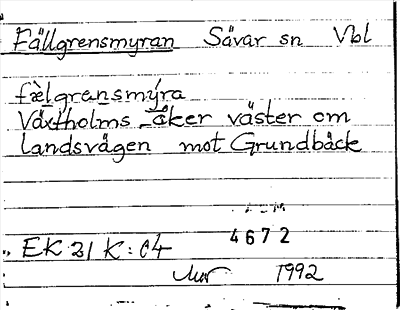 Fällgrensmyran Sävar sn Vbl
fèlgransmýra
Växtholms åker väster om
landsvägen mot Grundbäck
4672
EK 21 K: C4
1992